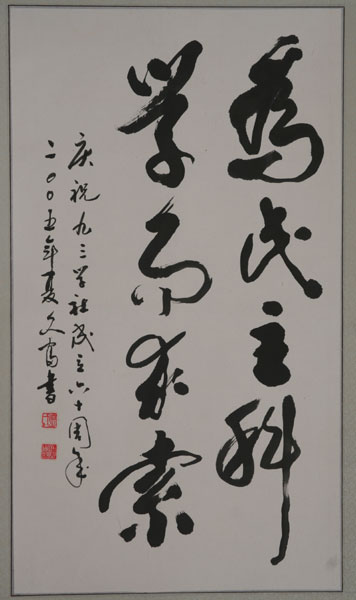 為民主科
学而求索
庆祝九三学社成立六十周年
二〇〇五年夏久富书